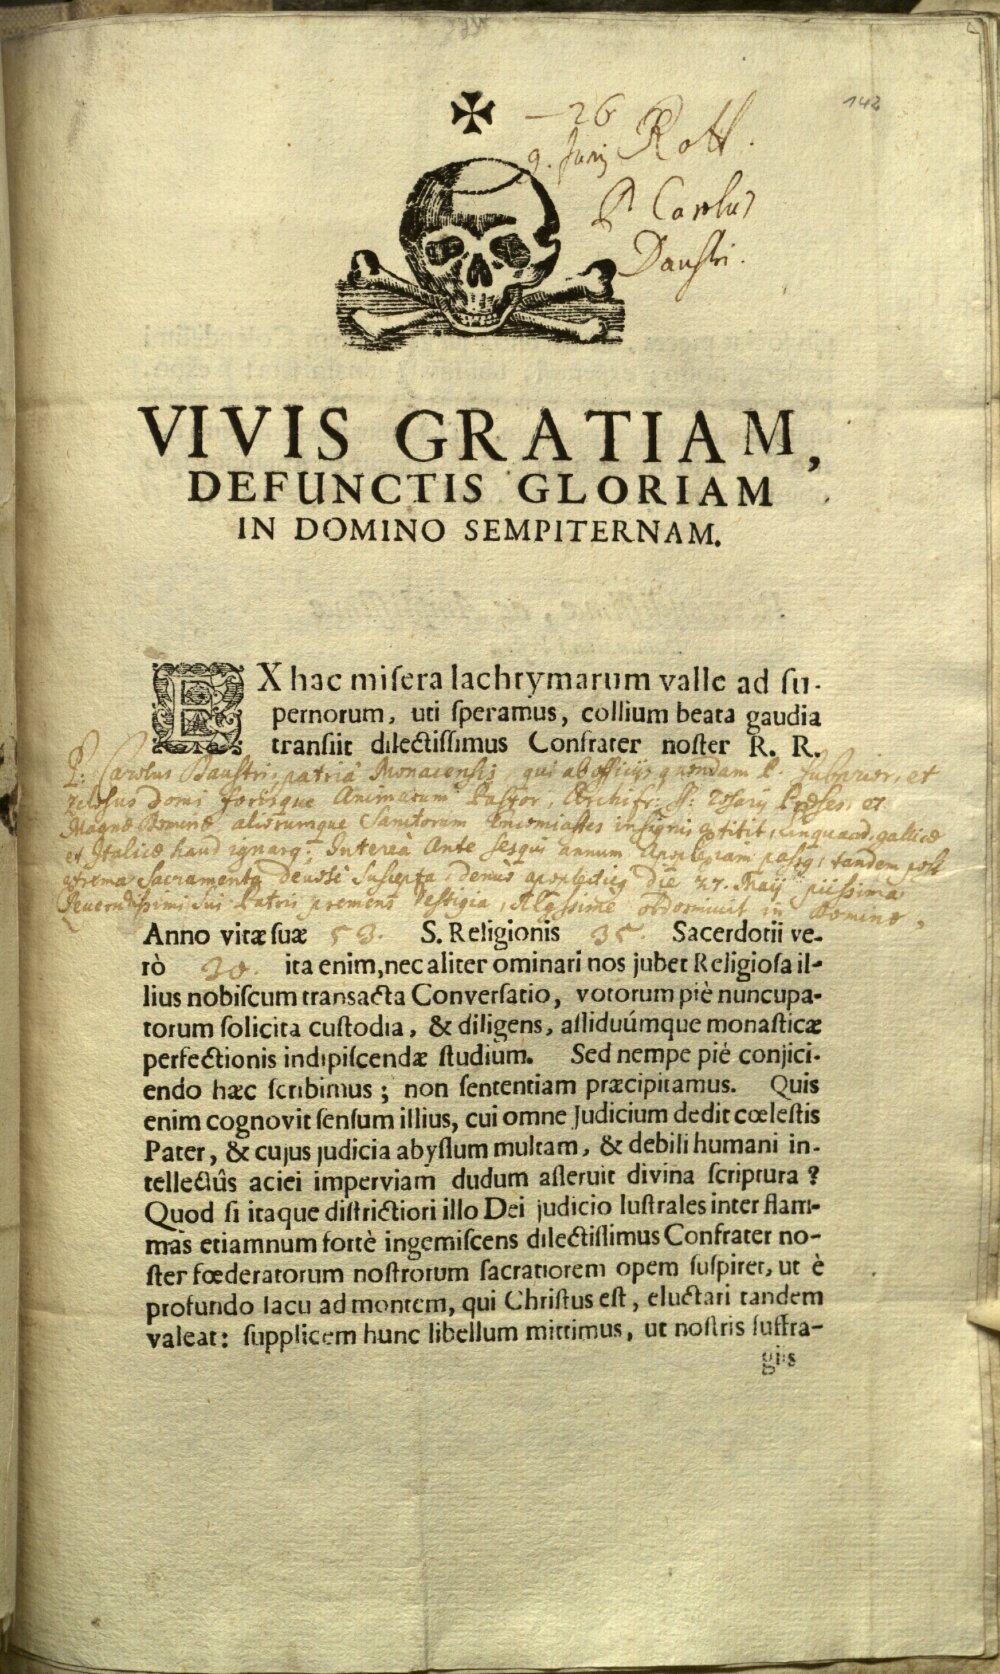 142
— 26
9. Junij Rott.
P Carolus
Daustri.
VIVIS GRATIAM,
DEFUNCTIS GLORIAM
IN DOMINO SEMPITERNAM.
EX hac miſera lachrymarum valle ad ſu-
pernorum, uti ſperamus, collium beata gaudia
tranſiit dilectiſſimus Confrater noſter R. R.
P: Carolus Daustri, patriâ Monacensis, qui ab officijs quondam P. Subprior, et
zelosus domi forisque Animarum Pastor, Archifr: SS: Rosarij Præses, et
Magnæ Dominæ aliorumque Sanctorum Encomiastes insignis extitit, Linguarum gallicæ
et Italicæ haud ignarus. Interea Ante sesqui annum Apoplexiam passus, tandem post
extrema Sacramenta devote suscepta, denuo apoplecticus Die 27. Maij piissima
Reverendissimi sui Patris premens Vestigia, obdormivit in Domino,
Anno vitæ ſuæ 53. S. Religionis 35. Sacerdotii ve-
rò 30. ita enim, nec aliter ominari nos jubet Religioſa il-
lius nobiſcum tranſacta Converſatio, votorum piè nuncupa-
torum ſolicita cuſtodia, & diligens, aſſiduúmque monaſticæ
perfectionis indipiſcendæ ſtudium. Sed nempe piè conjici-
endo hæc ſcribimus; non ſententiam præcipitamus. Quis
enim cognovit ſenſum illius, cui omne Judicium dedit cœleſtis
Pater, & cujus judicia abyſſum multam, & debili humani in-
tellectûs aciei imperviam dudum aſſeruit divina ſcriptura?
Quod ſi itaque diſtrictiori illo Dei judicio luſtrales inter flam-
mas etiamnum fortè ingemiſcens dilectiſſimus Confrater no-
ſter fœderatorum noſtrorum ſacratiorem opem ſuſpiret, ut è
profundo lacu ad montem, qui Chriſtus eſt, eluctari tandem
valeat: ſupplicem hunc libellum mittimus, ut noſtris ſuffra-
giis